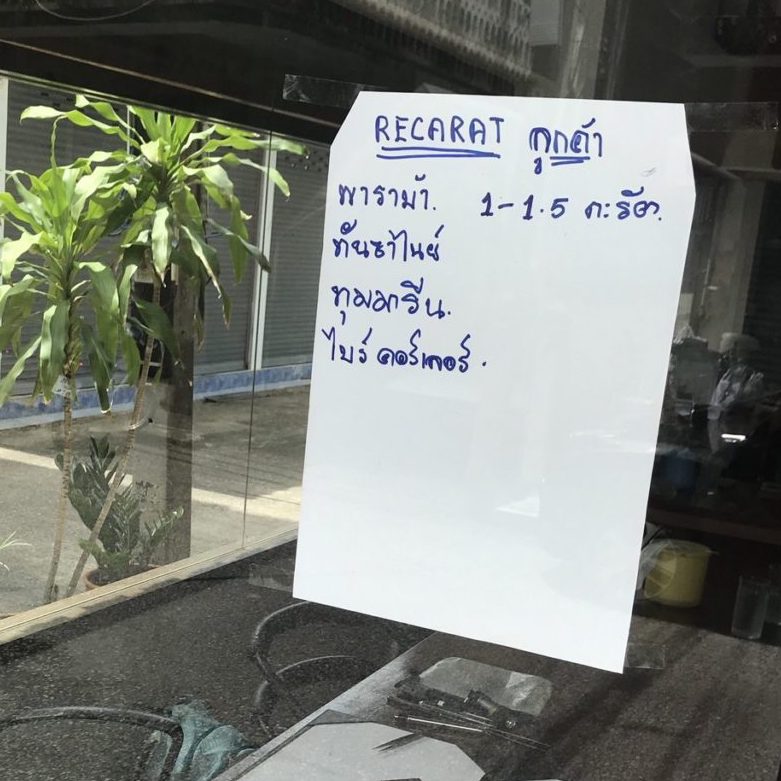 RECARAT ลูกค้า
พาราม้า. 1-1.5 กะรัต.
ทันซาไนย์
ไบร์ คอร์เลอร์.